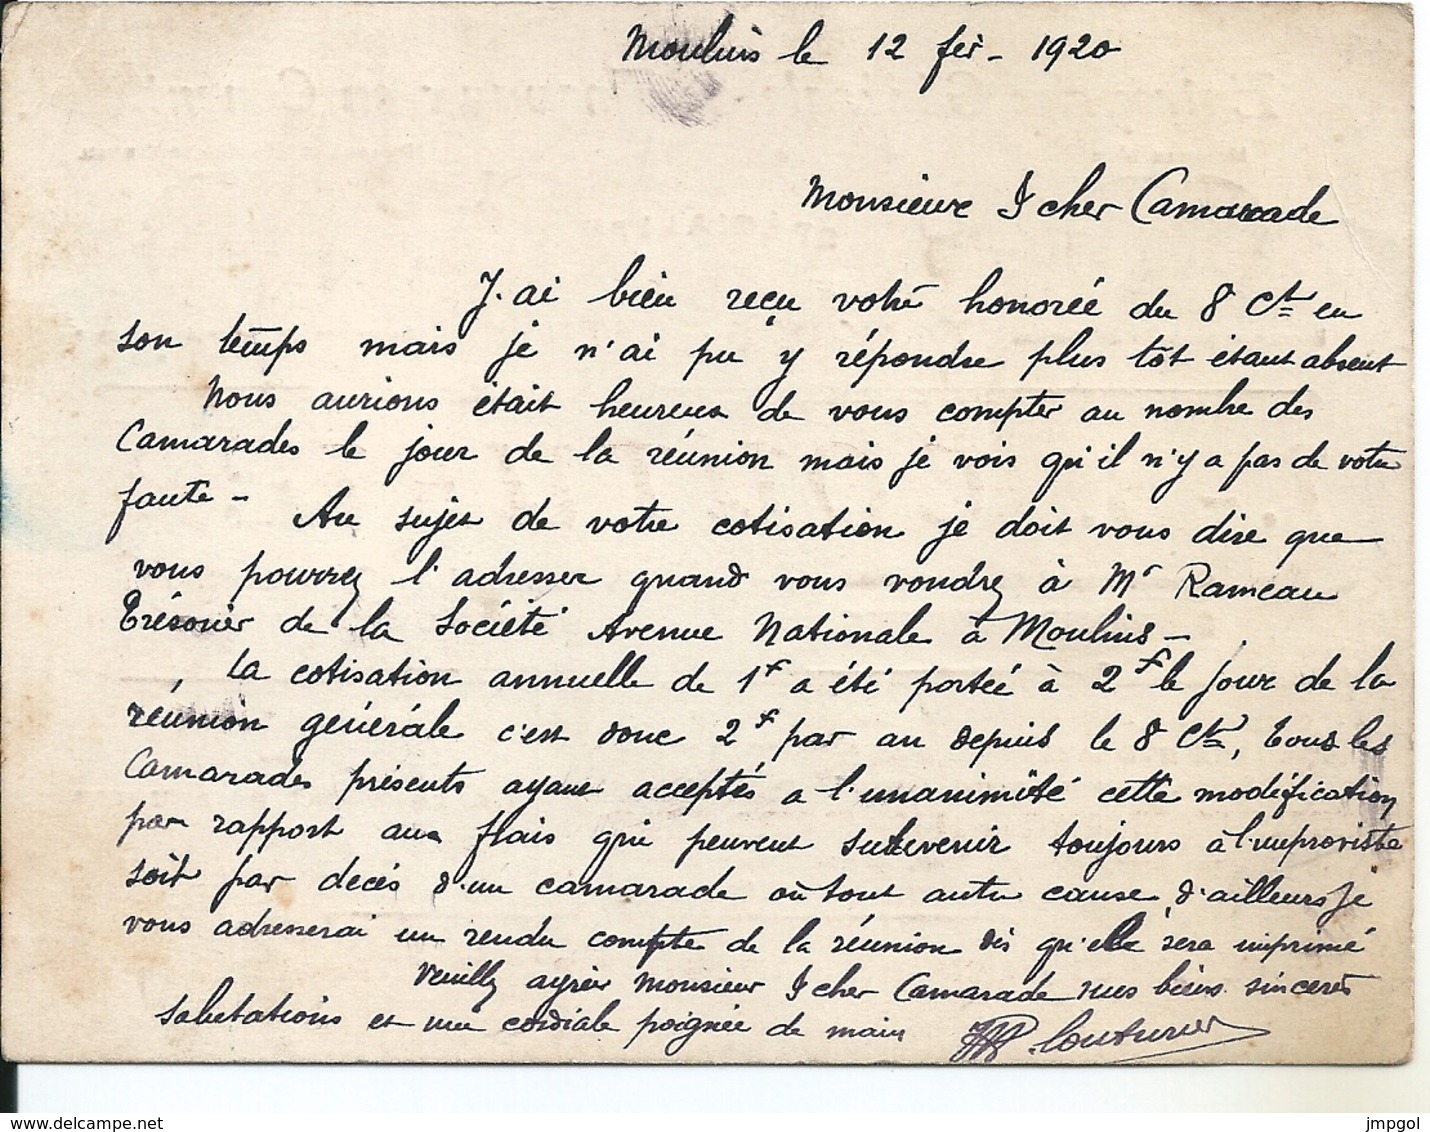 Moulins le 12 fév - 1920
Monsieur & cher Camarade
J'ai bien reçu votre honorée du 8 Ct en
son temps mais je n'ai pu y répondre plus tôt étant absent
Nous aurions était heureux de vous compter au nombre des
Camarades le jour de la réunion mais je vois qu'il n'y a pas de votre
faute - Au sujet de votre cotisation je doit vous dire que
vous pourrez l'adresser quand vous voudrez à Mr Rameau
Trésorier de la Société Avenue Nationale à Moulins -
La cotisation annuelle de 1f a été portée à 2f le jour de la
réunion générale c'est donc 2f par an depuis le 8 Ct, tous les
Camarades présents ayant acceptés a l'unanimité cette modification
par rapport aux frais qui peuvent survenir toujours à l'improviste
soit par décés d'un camarade où tout autre cause, d'ailleurs je
vous adresserai un rendu compte de la réunion dès qu'elle sera imprimé
Veuillez agréer Monsieur & cher Camarade nos biens sincères
salutations et une cordiale poignée de main Couturier
www.delcampe.net
jmpgol